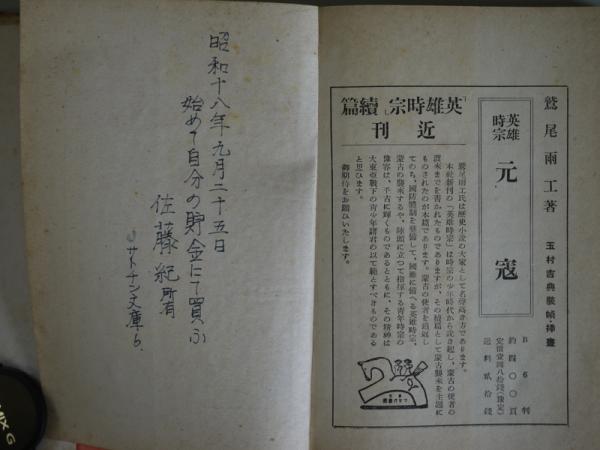 昭和十八年九月二十五日
始めて自分の貯金にて買ふ
佐藤紀所有
サトナン文庫6.
鷲尾雨工著
玉村吉典装幀・挿畫
英雄時宗
元寇
B6判
約四〇〇頁
送料貳拾錢
「英雄時宗」續篇
近刊
鷲尾雨工氏は歴史小説の大家として名聲高き方であります。
本社新刊の「英雄時宗」は時宗の少年時代から説き起し、蒙古の使者の
渡來までを書かれたものでありますが、その續篇として蒙古襲來を主題に
ものされたのが本篇であります。蒙古の使者を追返し
てのち、國防體制を整備して、國難に備へる英雄時宗、
蒙古の襲來するや、陣頭に立つて指揮する青年時宗の
像容は、千古に輝くものであるとともに、その精神は
大東亞戰下の青少年諸君の以て範とすべきものである
と思ひます。
御期待をお願ひいたします。
NIX G